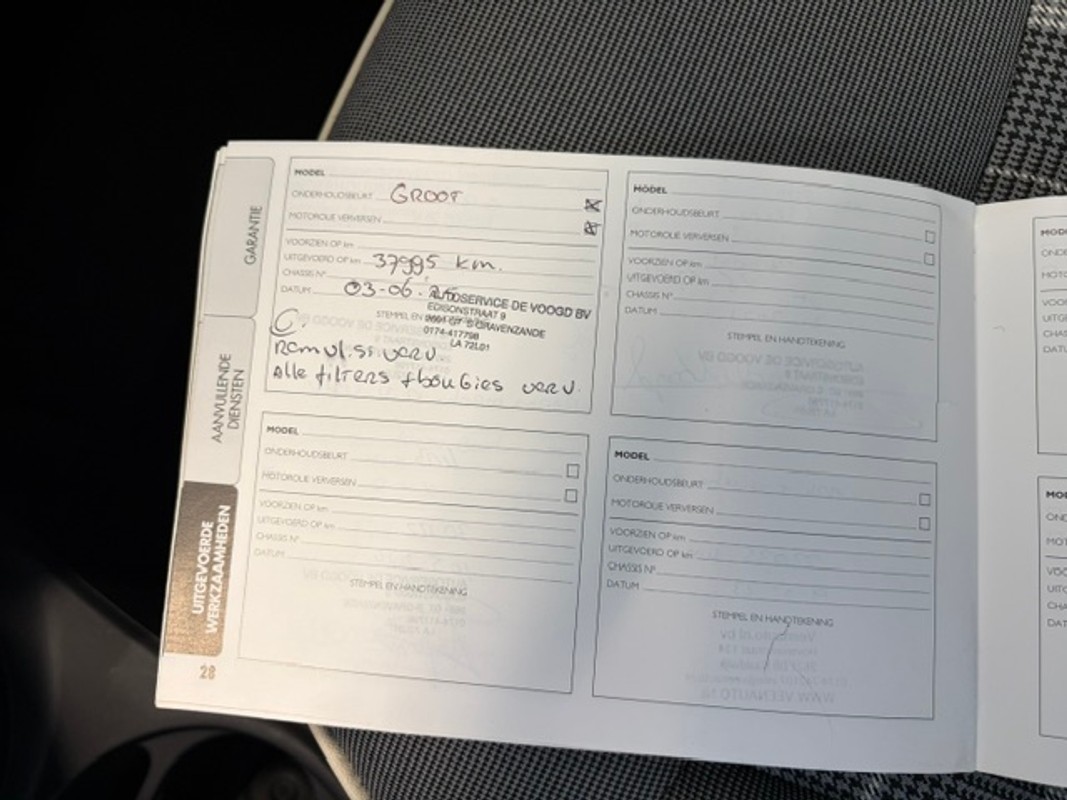 GARANTIE
AANVULLENDE
DIENSTEN
UITGEVOERDE
WERKZAAMHEDEN
28
MODEL
ONDERHOUDSBEURT GROOT
MOTOROLIE VERVERSEN
VOORZIEN OP km
UITGEVOERD OP km 37995 km.
CHASSIS N°
DATUM 03-06.
AUTOSERVICE DE VOOGD BV
EDISONSTRAAT 9
STEMPEL EN
'S GRAVENZANDE
0174-417798
LA 72L01
Remvl.st verv.
Alle filters + bougies verv.
MODEL
ONDERHOUDSBEURT
MOTOROLIE VERVERSEN
VOORZIEN OP km
UITGEVOERD OP km
CHASSIS N°
DATUM
STEMPEL EN HANDTEKENING
MODEL
ONDERHOUDSBEURT
MOTOROLIE VERVERSEN
VOORZIEN OP km
UITGEVOERD OP km
CHASSIS N°
DATUM
STEMPEL EN HANDTEKENING
MODEL
ONDERHOUDSBEURT
MOTOROLIE VERVERSEN
VOORZIEN OP km
UITGEVOERD OP km
CHASSIS N°
DATUM
STEMPEL EN HANDTEKENING